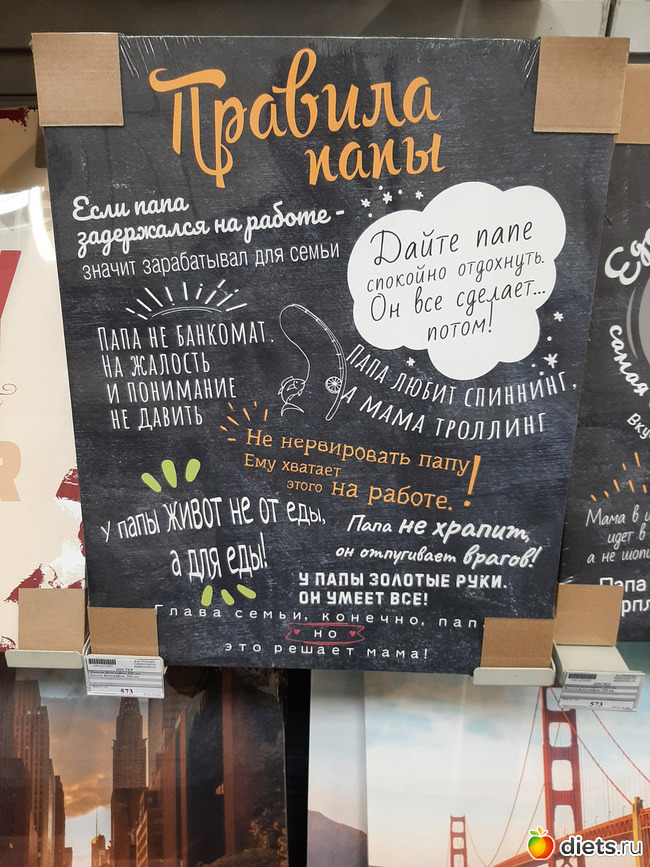 Правила
папы
Если папа
задержался на работе -
значит зарабатывал для семьи
Дайте папе
спокойно отдохнуть.
Он все сделает...
потом!
ПАПА НЕ БАНКОМАТ.
НА ЖАЛОСТЬ
И ПОНИМАНИЕ
НЕ ДАВИТЬ
ПАПА ЛЮБИТ СПИННИНГ,
А МАМА ТРОЛЛИНГ
Не нервировать папу!
Ему хватает
этого на работе.
У папы ЖИВОТ НЕ ОТ ЕДЫ,
а для ЕДЫ!
Папа не храпит,
он отпугивает врагов!
У ПАПЫ ЗОЛОТЫЕ РУКИ.
ОН УМЕЕТ ВСЕ!
Глава семьи, конечно, пап
но
это решает мама!
самая
Вку
Мама в
идет в
а не шоп
Папа
573
573
diets.ru